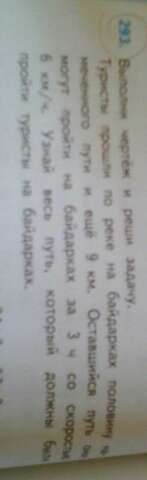 293. Выполни чертёж и реши задачу.
Туристы прошли по реке на байдарках половину
меченного пути и ещё 9 км. Оставшийся путь он
могут пройти на байдарках за 3 ч со скорость
6 км/ч. Узнай весь путь, который должны был
пройти туристы на байдарках.